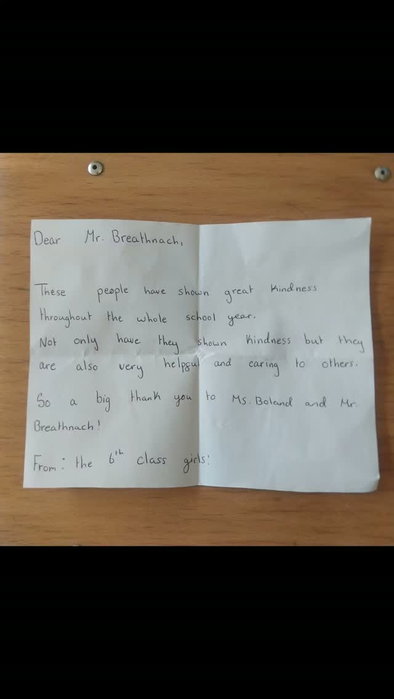 Dear Mr. Breathnach,
These people have shown great kindness
throughout the whole school year.
Not only have they shown kindness but they
are also very helpful and caring to others.
So a big thank you to Ms. Boland and Mr.
Breathnach!
From: the 6th class girls!